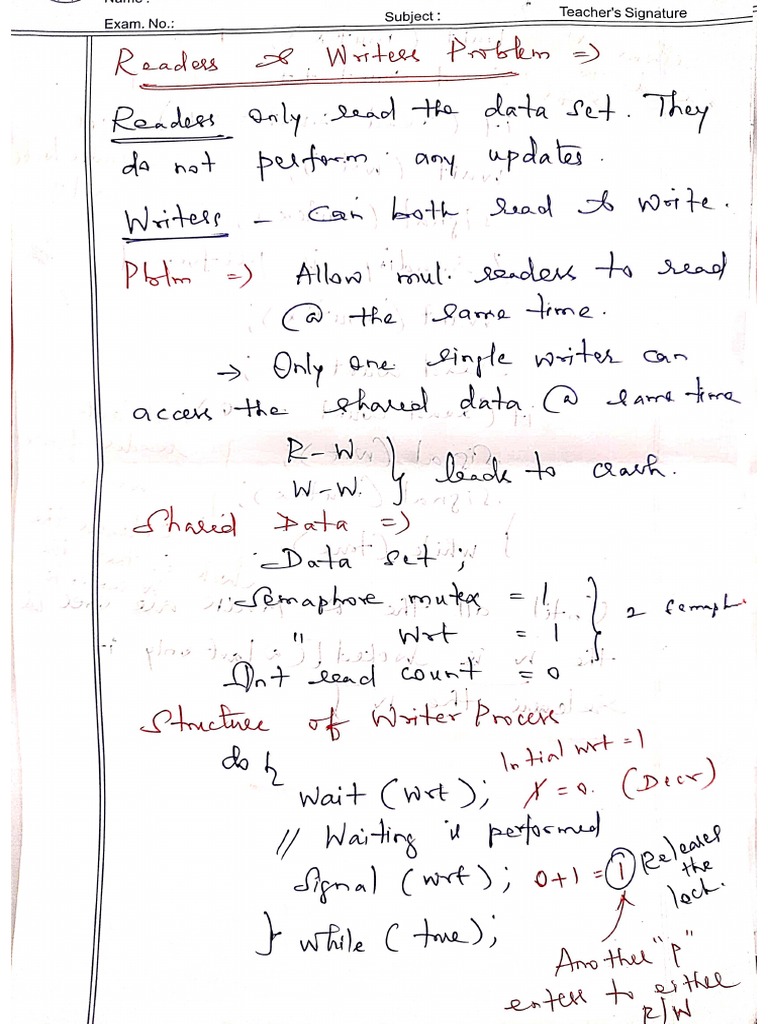 Name :
Exam. No.:
Subject :
Teacher's Signature
Readers & Writers Problem =>
Readers only read the data set. They
do not perform any updates.
Writers - Can both read & write.
Pblm => Allow mul. readers to read
@ the same time.
→ Only one single writer can
access the shared data @ same time
R-W
W-W. } leads to crash.
Shared Data =>
Data set ;
Semaphore mutex = 1
" wrt = 1 } 2 semaph.
Int read count = 0
Structure of Writer Process
do {
Initial wrt = 1
wait (wrt); 1 = 0. (Decr)
// Waiting is performed
Signal (wrt); 0+1 = 1 Releases
the
lock.
} while (true);
Another "P"
enters to either
R/W